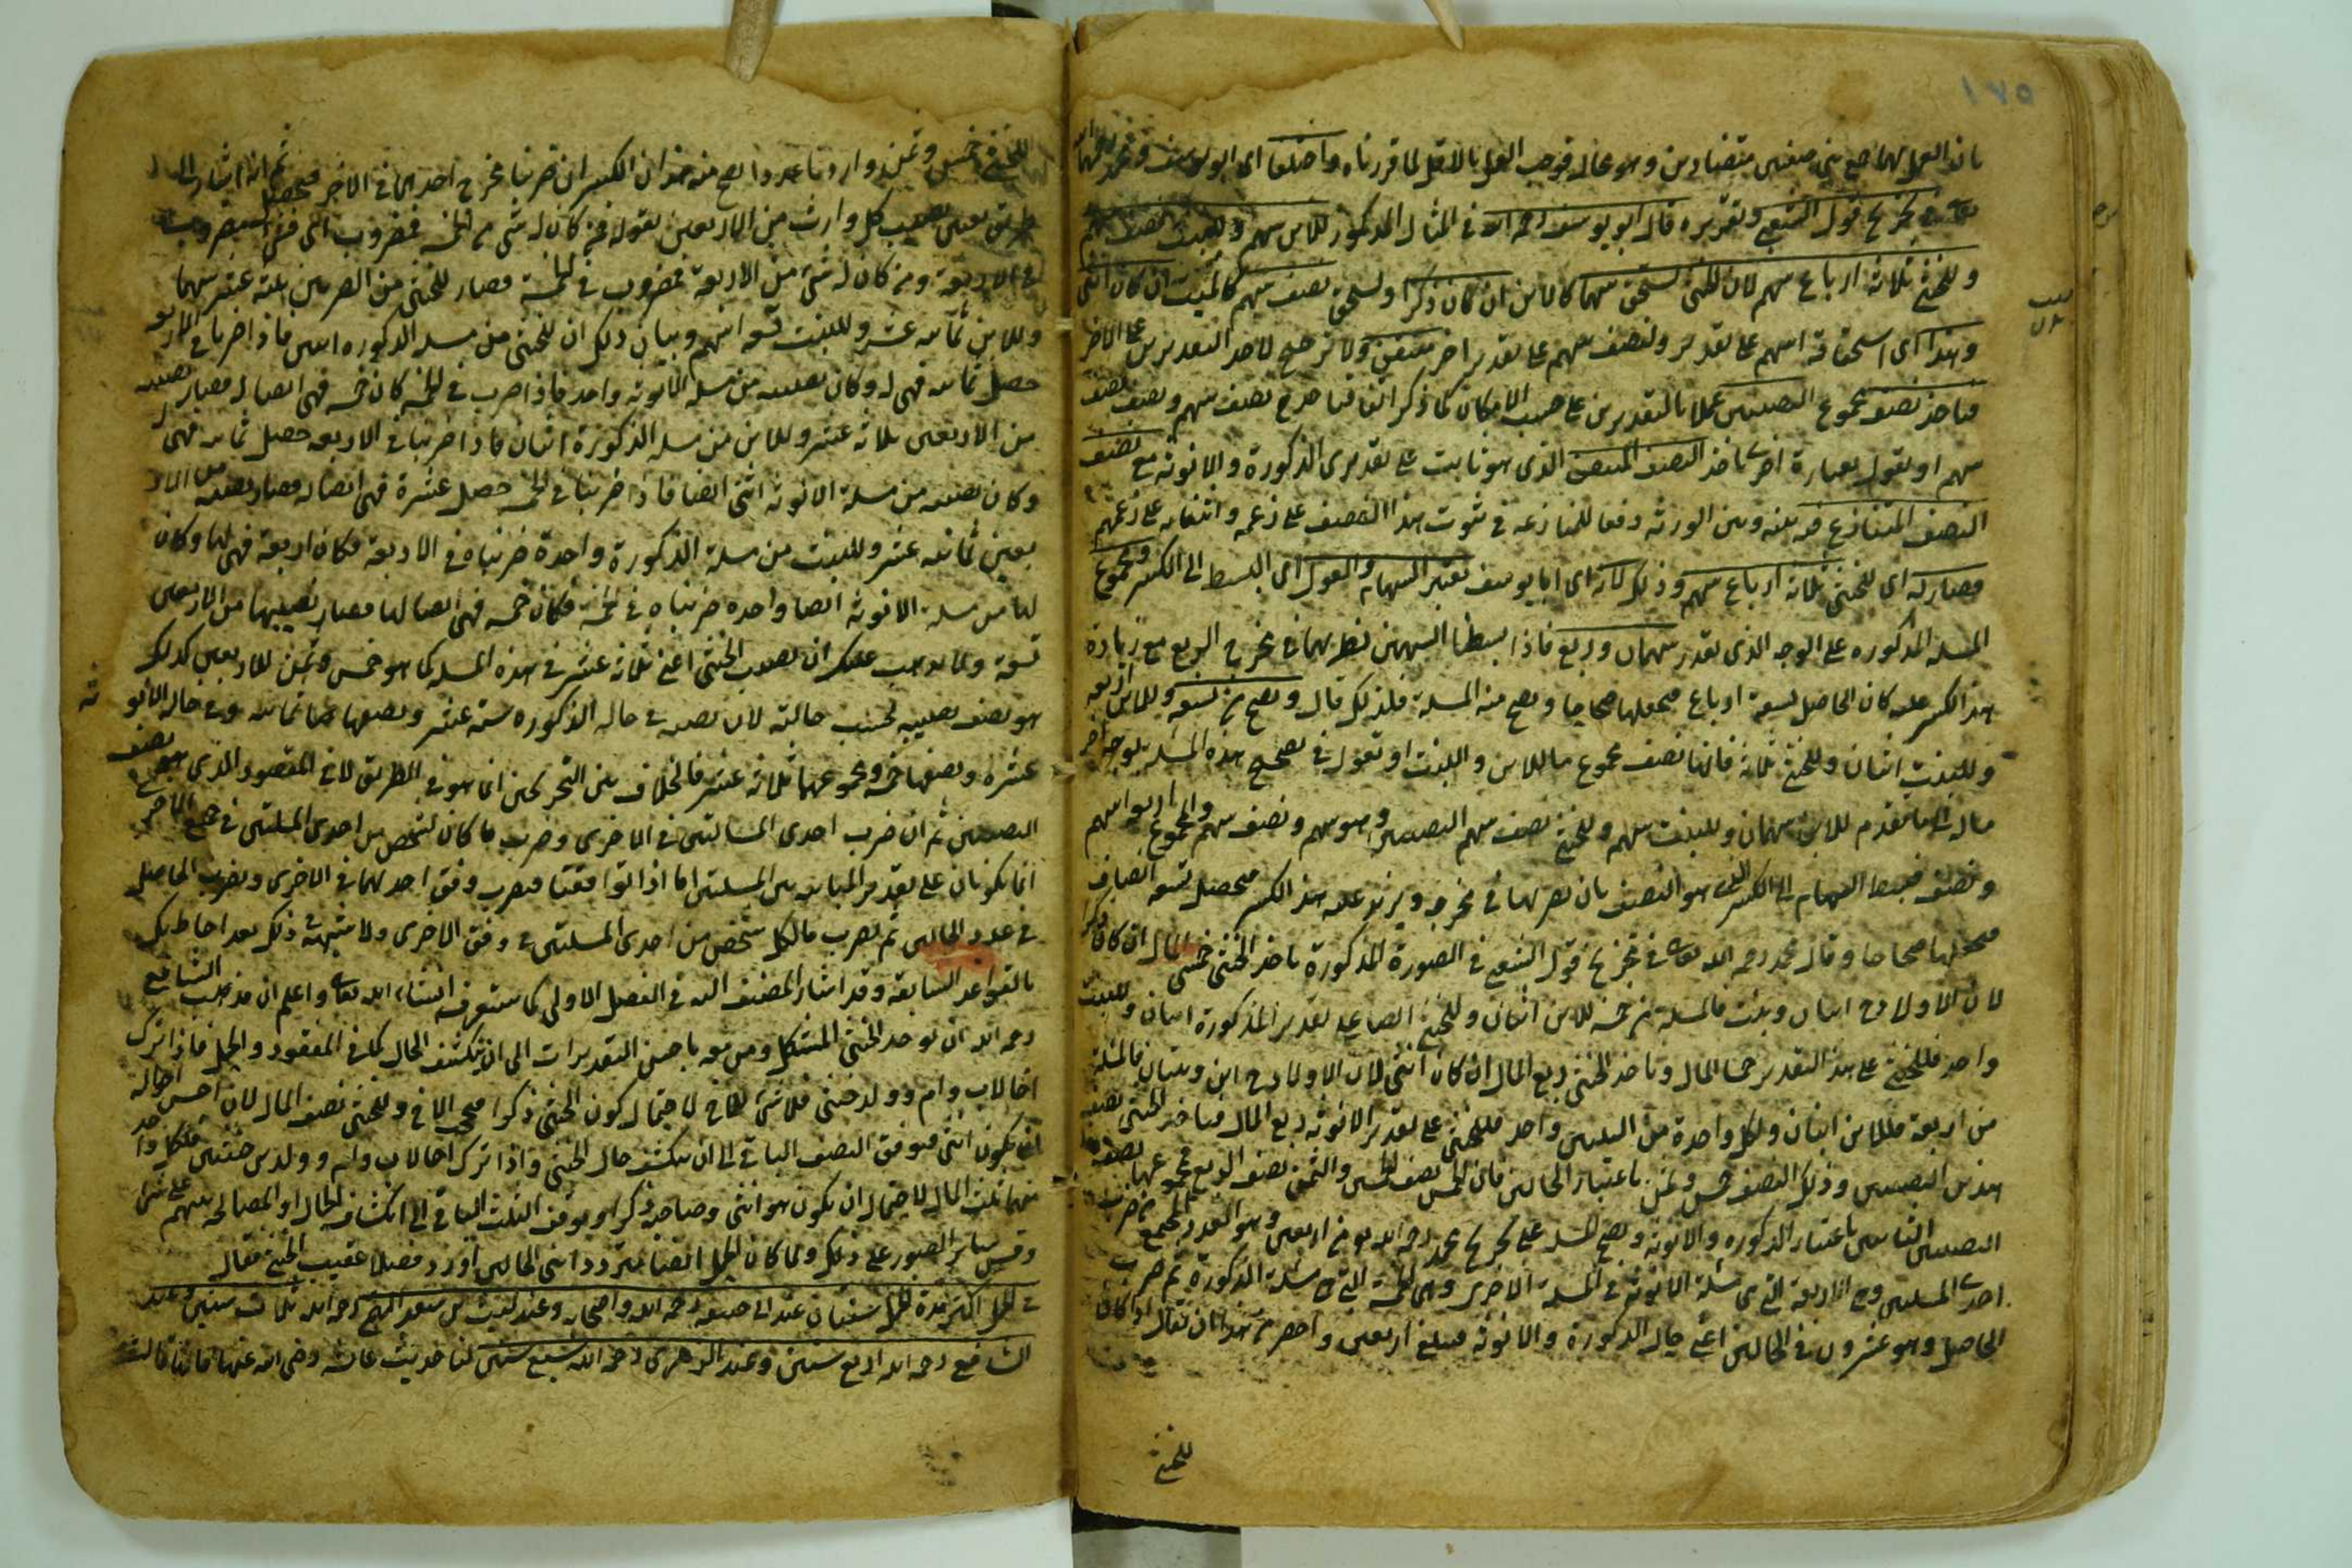 ١٧٥
بان العمل بهما جمع بين صفتين متضادتين وهو محال فوجب العمل بالاقل لما قررناه واختلفا اى ابو يوسف ومحمد رحمهما الله
تعالى فى تخريج قول الشعبى وتقريره قال ابو يوسف رحمه الله فى المثال المذكور للابن سهم وللبنت نصف سهم
وللخنثى ثلاثة ارباع سهم لان الخنثى يستحق سهما كالابن ان كان ذكرا ويستحق نصف سهم كالبنت ان كان انثى
وهذا اى استحقاقه السهم على تقدير ونصف سهم على تقدير اخر متيقن ولا ترجيح لاحد التقديرين على الاخر
فياخذ نصف مجموع النصيبين عملا بالتقديرين على حسب الامكان كما ذكر انفا فياخذ ح نصف سهم ونصف نصف
سهم او نقول بعبارة اخرى ياخذ النصف المتيقن الذى هو ثابت على تقديرى الذكورة والانوثة مع نصف
النصف المتنازع فيه بينه وبين الورثة دفعا للمنازعة فى ثبوت هذا النصف على زعمه وانتفائه على زعمهم
فصار له اى للخنثى ثلاثة ارباع سهم وذلك لانه اى ابا يوسف يعتبر السهام والعول اى البسط الى الكسر ومجموع
المسئلة المذكورة على الوجه الذى تقدر سهمان وربع فاذا بسطنا السهمين بضربهما فى مخرج الربع مع زيادة
هذا الكسر عليه كان الحاصل تسعة ارباع فيجعلها صحاحا وتصح منه المسئلة فلذلك قال وتصح من تسعة وللابن اربعة
وللبنت اثنان وللخنثى ثلاثة فانها نصف مجموع ما للابن والبنت او نقول فى تصحيح هذه المسئلة بوجه اخر
للابن سهمان وللبنت سهم وللخنثى نصف النصيبين وهو سهم ونصف سهم والمجموع اربعة اسهم
ونصف فيبسط السهام الى الكسر الذى هو النصف بان نضربها فى مخرجه ونزيد عليه هذا الكسر فيحصل تسعة انصاف
فيجعلها صحاحا وقال محمد رحمه الله تعالى فى تخريج قول الشعبى فى الصورة المذكورة ياخذ الخنثى خمسى المال ان كان ذكرا
لان الاولاد ح ابنان وبنت فالمسئلة من خمسة للابن اثنان وللخنثى ايضا على تقدير الذكورة اثنان وللبنت
واحد فللخنثى على هذا التقدير خمسا المال وياخذ الخنثى ربع المال ان كان انثى لان الاولاد ح ابن وبنتان فالمسئلة
من اربعة فللابن اثنان ولكل واحدة من البنتين واحد فللخنثى على تقدير الانوثة ربع المال فياخذ الخنثى نصف
هذين النصيبين وذلك النصف خمس وثمن باعتبار الحالين فان الخمس نصف الخمسين والثمن نصف الربع فمجموعهما نصف
النصيبين الثابتين باعتبار الذكورة والانوثة وتصح المسئلة على تخريج محمد رحمه الله من اربعين وهو العدد المجتمع من ضرب
احدى المسئلتين وهى الاربعة التى هى مسئلة الانوثة فى المسئلة الاخرى وهى الخمسة التى هى مسئلة الذكورة ثم ضرب
الحاصل وهو عشرون فى الحالين اعنى حال الذكورة والانوثة فيبلغ اربعين واخصر من هذا ان نقال اذا كان
للخنثى
للخنثى خمس وثمن واردنا عددا يصح منه هذان الكسران ضربنا مخرج احدهما فى الاخر فيحصل ثم انه اشار الى
طريق تعيين نصيب كل وارث من الاربعين بقوله فمن كان له شئ من الخمسة فمضروب
فى الاربعة ومن كان له شئ من الاربعة فمضروب فى الخمسة فصار للخنثى من الضربين ثلاثة عشر سهما
وللابن ثمانية عشر وللبنت تسعة اسهم وبيان ذلك ان للخنثى من مسئلة الذكورة اثنين فاذا ضربا فى الاربعة
حصل ثمانية فهى له وكان نصيبه من مسئلة الانوثة واحد فاذا ضرب فى الخمسة كان خمسة فهى ايضا له فصار نصيبه
من الاربعين ثلاثة عشر وللابن من مسئلة الذكورة اثنان فاذا ضربنا فى الاربعة حصل ثمانية فهى له
وكان نصيبه من مسئلة الانوثة اثنين ايضا فاذا ضربنا فى الخمسة حصل عشرة فهى ايضا له فصار نصيبه من الار
بعين ثمانية عشر وللبنت من مسئلة الذكورة واحدة ضربناه فى الاربعة فكان اربعة فهى لها وكان
لها من مسئلة الانوثة ايضا واحدة ضربناه فى الخمسة فكان خمسة فهى ايضا لها فصار نصيبها من الاربعين
تسعة ولما يذهب عليك ان نصيب الخنثى اعنى ثلاثة عشر فى هذه المسئلة كما هو خمس وثمن للاربعين كذلك
هو نصف نصيبيه بحسب حالتيه لان نصيبه فى حالة الذكورة ستة عشر ونصفها ثمانية وفى حالة الانوثة
عشرة ونصفها خمسة ومجموعهما ثلاثة عشر فالخلاف بين التخريجين انما هو فى الطريق لا فى المقصود الذى هو نصف
النصيبين ثم ان ضرب احدى المسئلتين فى الاخرى وضرب ما كان لشخص من احدى المسئلتين فى جميع الاخرى
انما يكونان على تقدير المباينة بين المسئلتين اما اذا توافقتا فيضرب وفق احدهما فى الاخرى ويضرب الحاصل
فى عدد الحالين ثم يضرب ما لكل شخص من احدى المسئلتين فى وفق الاخرى ولا يشتبه ذلك بعد احاطتك
بالقواعد السابقة وقد اشار المصنف اليه فى الفصل الاولى كما ستعرف انشاء الله تعالى واعلم ان مذهب الشافعى
رحمه الله ان يؤخذ الخنثى المشكل ومن معه باخس التقديرات الى ان ينكشف الحال كما فى المفقود والحمل فاذا ترك
اخا لاب وام وولد خنثى فلا شئ للاخ لاحتمال كون الخنثى ذكرا فيحجب الاخ وللخنثى نصف المال لان اخس احواله
ان يكون انثى فيوقف النصف الباقى الى ان ينكشف حال الخنثى واذا ترك اخا لاب وام وولدين خنثيين فلكل واحد
منهما ثلث المال لاحتمال ان يكون هو انثى وصاحبه ذكرا ويوقف الثلث الباقى الى انكشاف الحال او المصالحة بينهم على شئ
وقس سائر الصور على ذلك ولما كان الحمل ايضا مترددا بين الحالين اورد فصلا عقيب الخنثى فقال
فى الحمل اكثر مدة الحمل سنتان عند ابى حنيفة رحمه الله واصحابه وعند ليث بن سعد الفهمى رحمه الله ثلاث سنين وعند
الشافعى رحمه الله اربع سنين وعند الزهرى رحمه الله سبع سنين لنا حديث عائشة رضى الله عنها فانها قالت